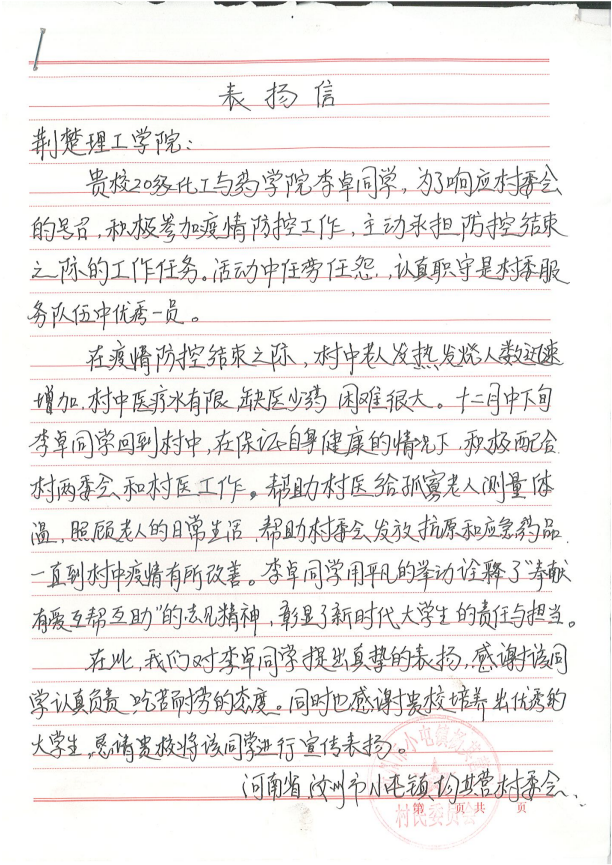 表扬信
荆楚理工学院：
贵校20级化工与药学院李卓同学，为了响应村委会
的号召，积极参加疫情防控工作，主动承担防控结束
之际的工作任务。活动中任劳任怨，认真职守是村委服
务队伍中优秀一员。
在疫情防控结束之际，村中老人发热发烧人数迅速
增加，村中医疗水有限 缺医少药 困难很大。十二月中下旬
李卓同学回到村中，在保证自身健康的情况下，积极配合
村两委会和村医工作。帮助村医给孤寡老人测量体
温，照顾老人的日常生活，帮助村委会发放抗原和应急药品，
一直到村中疫情有所改善。李卓同学用平凡的举动诠释了“奉献
有爱互帮互助”的志愿精神，彰显了新时代大学生的责任与担当。
在此，我们对李卓同学提出真挚的表扬，感谢该同
学认真负责 吃苦耐劳的态度。同时也感谢贵校培养出优秀的
大学生，恳请贵校将该同学进行宣传表扬。
河南省汝州市小屯镇 村委会
第 页共 页
小屯镇
村民委员会